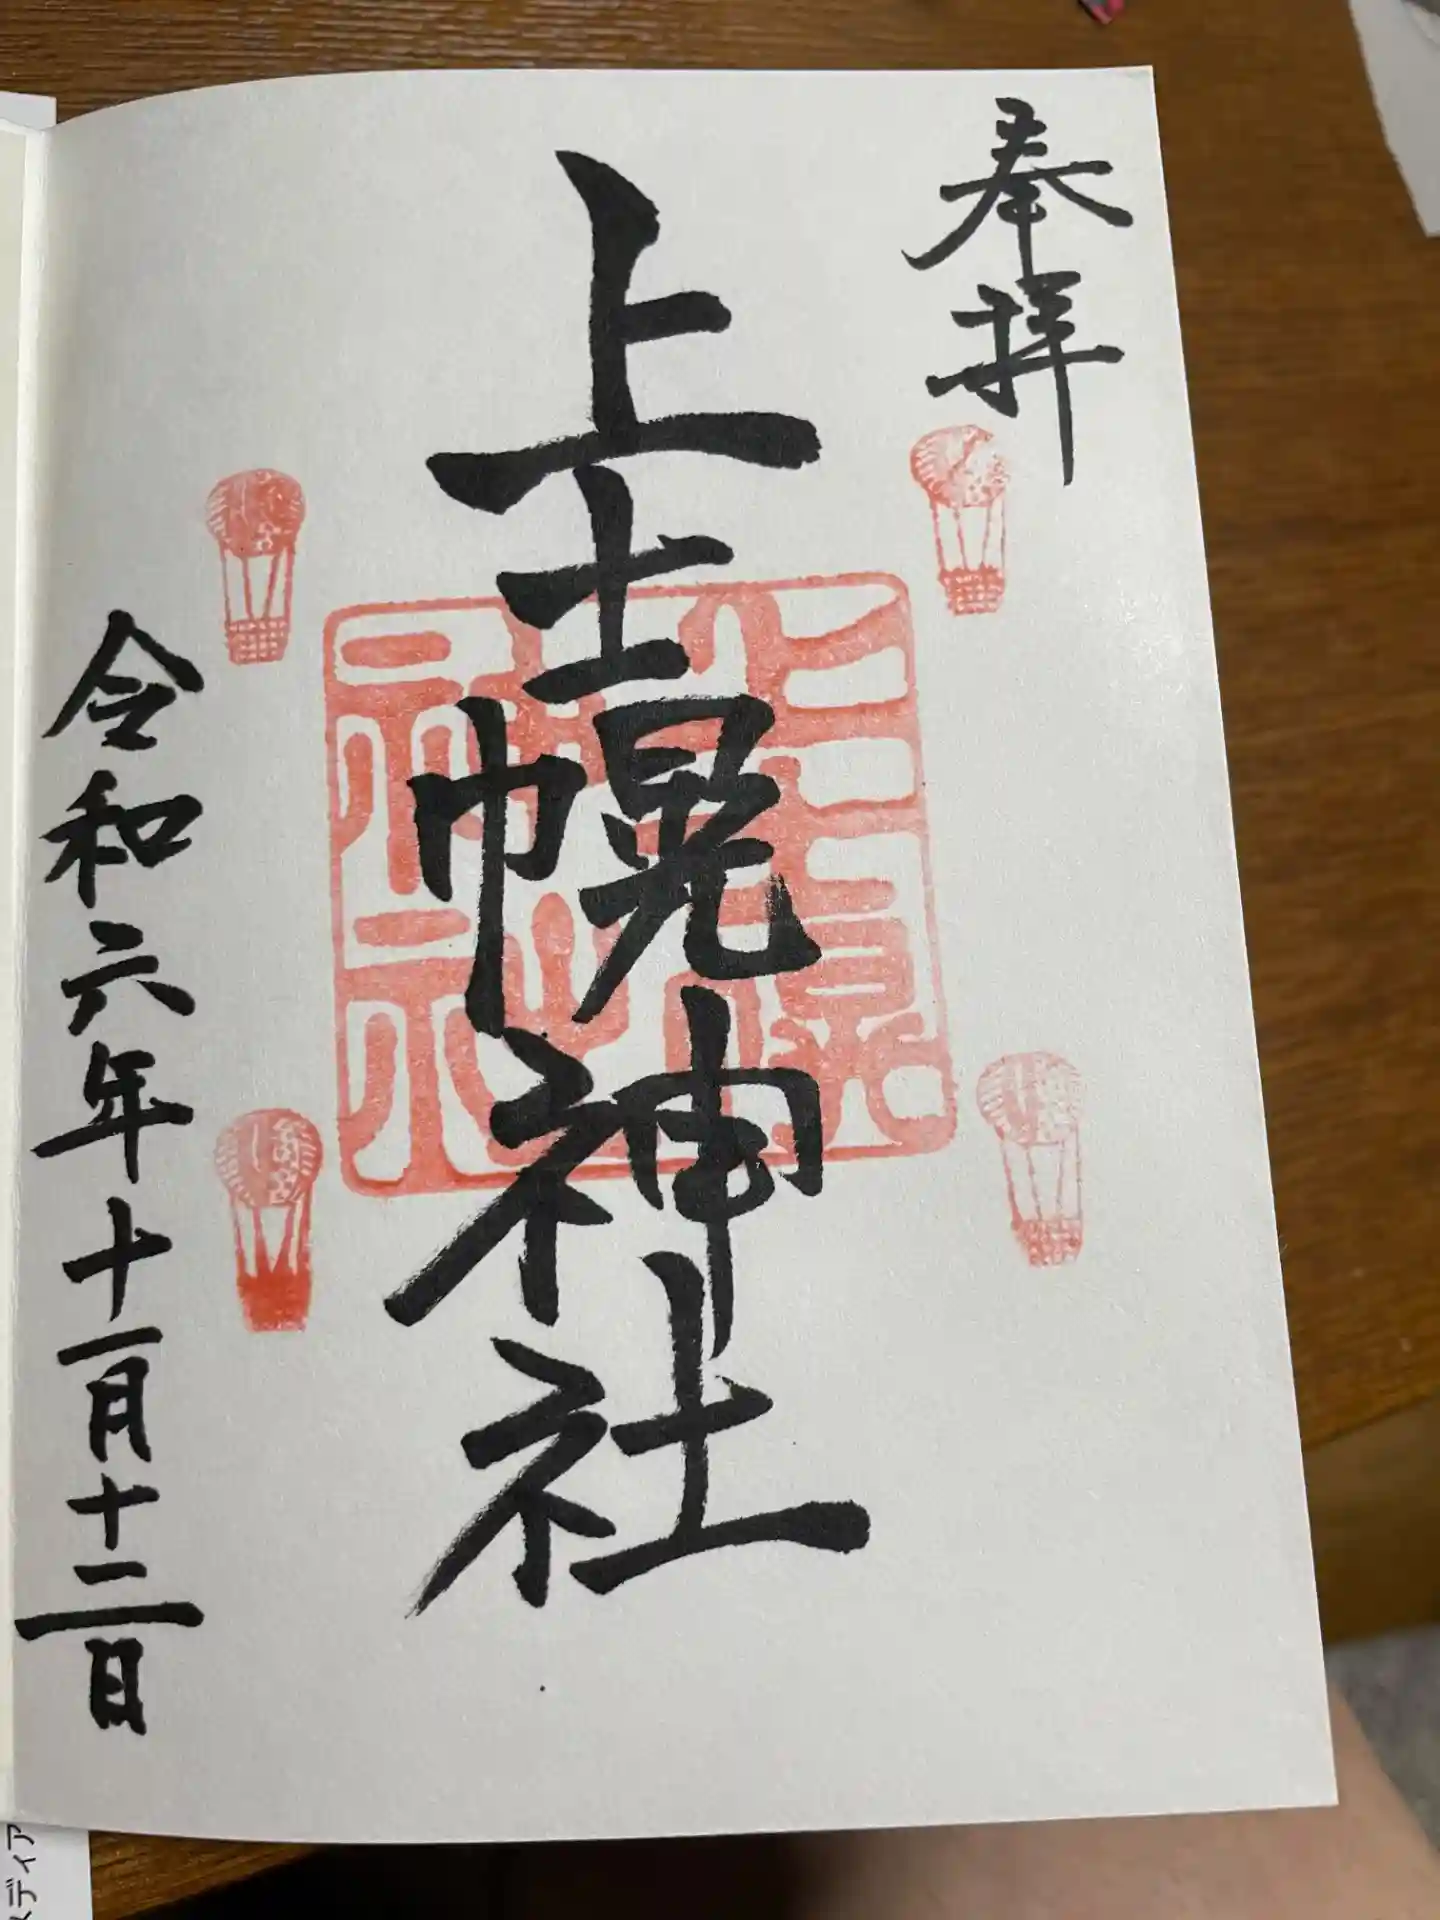 奉拝
上士幌神社
上士幌神社
令和六年十一月十二日
ディア